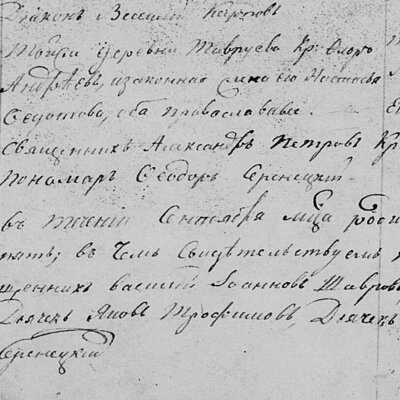 Дiаконъ Василiй Карповъ
Тойже деревни Тавруева Кр: Ѳлоръ
Андрѣевъ, и законная жена его Настасья
Ѳедотова, оба православные.
Священникъ Александръ Петровъ Кр
Пономарь Ѳеодоръ Серенецкiй
въ теченiи Сентября мѣца роди
пять; въ чемъ Свидѣтельствуемъ
щенникъ Василiй Iоанновъ Шавров
Дьячекъ Яковъ Трофимовъ, Дьячекъ
Серенецкiй